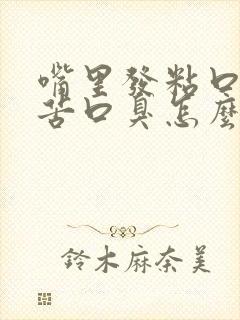 嘴里發粘口
苦口臭怎麽
鈴木麻奈美